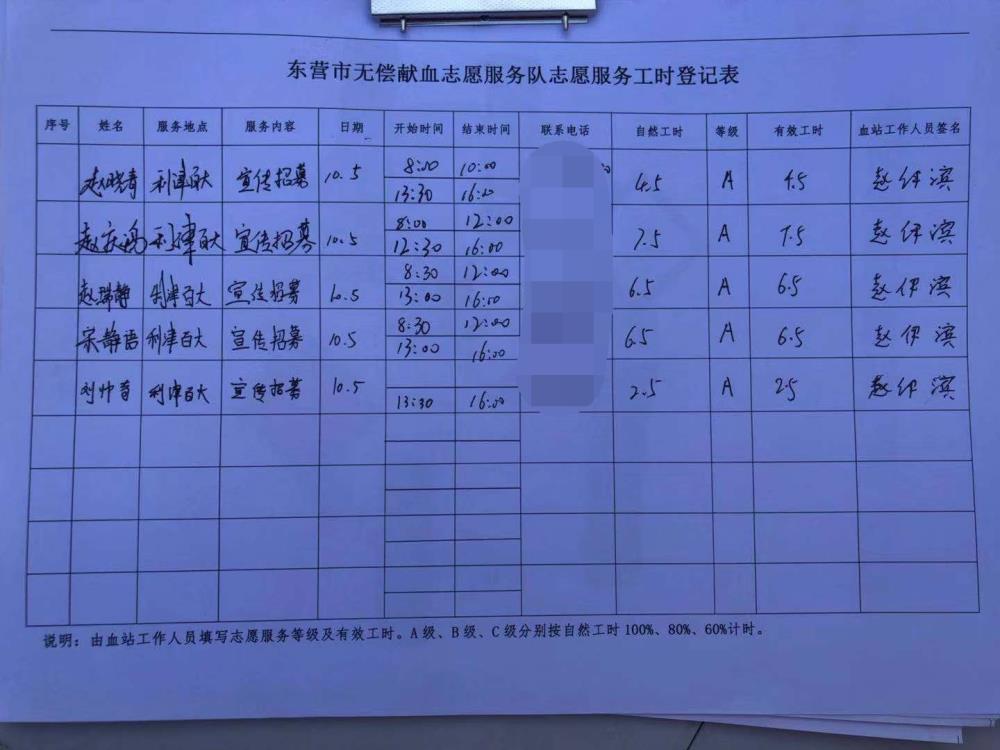 东营市无偿献血志愿服务队志愿服务工时登记表
序号 姓名 服务地点 服务内容 日期 开始时间 结束时间 联系电话 自然工时 等级 有效工时 血站工作人员签名
赵晓青 利津百大 宣传招募 10.5 8:00 10:00 4.5 A 4.5 赵伊滨
13:30 16:00
赵庆鸿 利津百大 宣传招募 10.5 8:00 12:00 7.5 A 7.5 赵伊滨
12:30 16:00
赵瑞静 利津百大 宣传招募 10.5 8:30 12:00 6.5 A 6.5 赵伊滨
13:00 16:00
宋静语 利津百大 宣传招募 10.5 8:30 12:00 6.5 A 6.5 赵伊滨
13:00 16:00
利津百大 宣传招募 10.5 2.5 A 2.5 赵伊滨
13:30 16:00
说明：由血站工作人员填写志愿服务等级及有效工时。A级、B级、C级分别按自然工时100%、80%、60%计时。